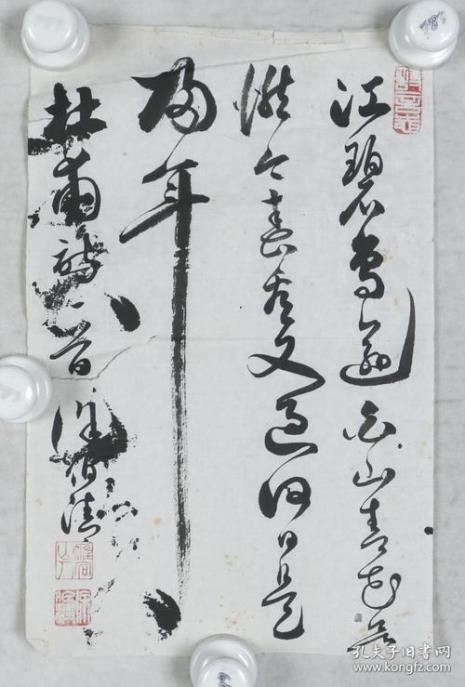 江碧鳥逾白山青花欲
燃今春看又過何日是
歸年
杜甫詩一首 徐伯清
孔夫子旧书网
www.kongfz.com